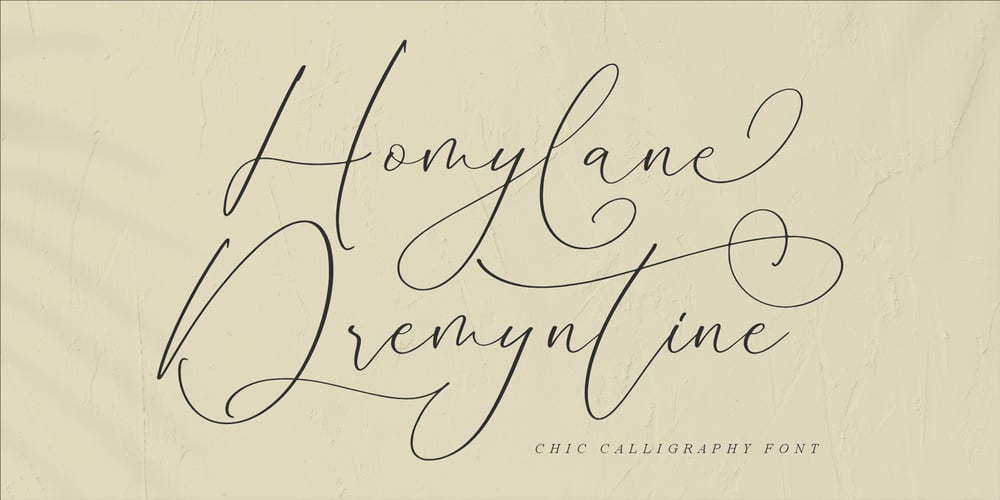 Homylane
Dremyntine
CHIC CALLIGRAPHY FONT